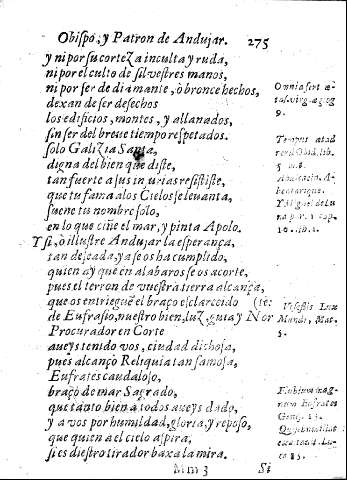 Obispo, y Patron de Andujar. 275
y ni por su corteza inculta y ruda,
ni por el culto de silvestres manos,
ni por ser de diamante, ò bronce hechos,
dexan de ser desechos
los edificios, montes, y allanados,
sin ser del breue tiempo respetados.
solo Galizia Santa,
digna del bien que diste,
tan fuerte a sus injurias resististe,
que tu fama a los Cielos se leuanta,
suene tu nombre solo,
en lo que ciñe el mar, y pinta Apolo.
Y si, ò illustre Andujar la esperança,
tan deseada, ya se os ha cumplido,
quien ay que en alabaros se os acorte,
pues el terron de vuestra tierra alcança,
que os entriegue el braço esclarecido (te:
de Eufrasio, nuestro bien, luz, guia y Nor
Procurador en Corte
aueys tenido vos, ciudad dichosa,
pues alcançò Reliquia tan famosa,
Eufrates caudaloso,
braço de mar Sagrado,
que tanto bien a todos aueys dado,
y a vos por humildad, gloria, y reposo,
que quien a el cielo aspira,
si es diestro tirador baxa la mira.
Mm 3 Si
Omnia fert
9.
Tempus
Y
10.
Mundi, Mat.
5.
Flubium mag-
num Eufraten
Genes. 15.